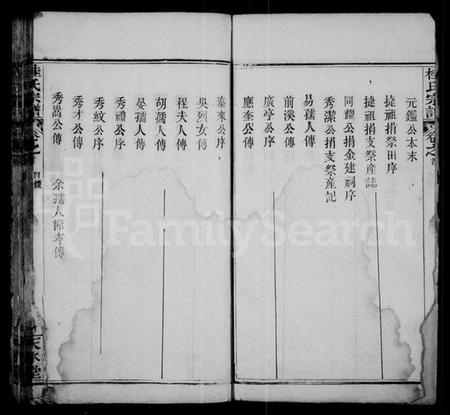 桂氏宗譜
元鑑公本末
捷祖捐祭田序
捷祖捐支祭產誌
同耀公捐金建祠序
秀潔公捐支祭產記
易孺人傳
前溪公傳
廣亭公序
應奎公傳
秦來公序
吳烈女傳
程夫人傳
胡孺人傳
晏孺人傳
秀禮公序
秀紋公序
秀才公傳
秀嵩公傳 余孺人節孝傳
氏宗譜
目錄
天水堂
FamilySearch